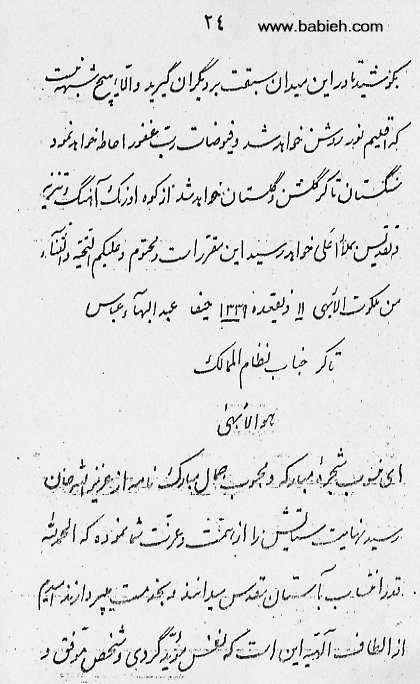 ٢٤
www.babieh.com
بکوشید تا در این میدان سبقت بر دیگران گیرید و الّا ابداً هیچ شبهه نیست
که اقلیم نور روشن خواهد شد و فیوضات ربّ غفور احاطه خواهد نمود
سنگستان تاکر گلشن و گلستان خواهد شد از کوه اورنگ آهنگ و تنزیه
و تقدیس بملأ اعلی خواهد رسید این مقرّر است و محتوم و علیکم التّحیّة و الثّنآء
من ملکوت الأبهی ١١ ذیقعده ١٣٣٩ حیفا عبدالبهآء عبّاس
تاکر جناب نظام الممالک
هو الأبهی
ای منسوب شجرهٔ مبارکه و محبوب جمال مبارک نامه از عزیزالله خان
رسید نهایت ستایش را از همّت و غیرت شما نموده که الحمدلله
قدر انتساب آستان مقدّس میدانند و بخدمت میپردازند امیدم
از الطاف الهیّه این است که نفس مؤیّد گردی و شخص موفّق و